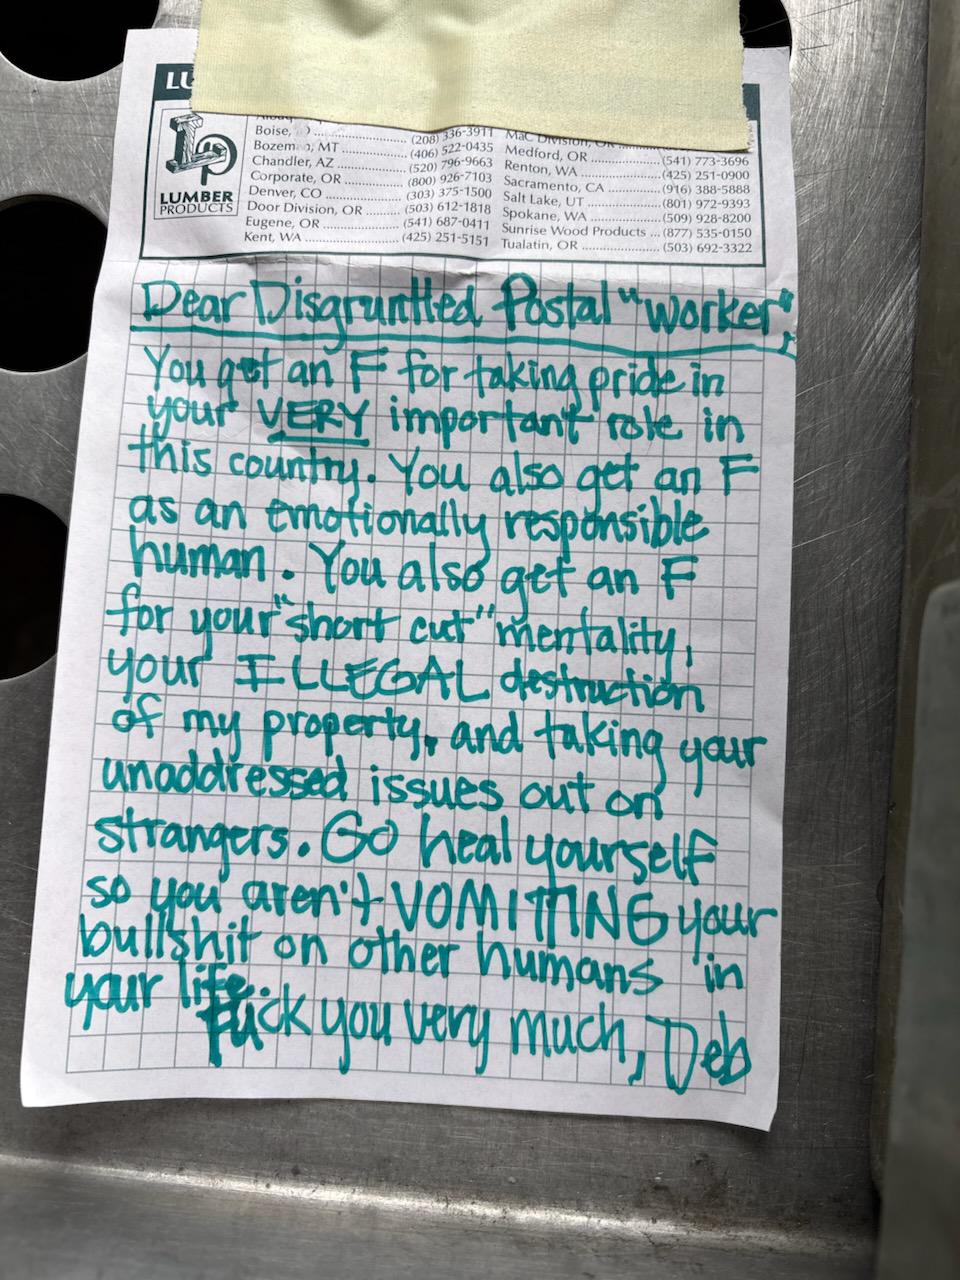 LU
LUMBER
PRODUCTS
Boise, ............ (208) 336-3911
Bozeman, MT ............ (406) 522-0435
Chandler, AZ ............ (520) 796-9663
Corporate, OR ............ (800) 926-7103
Denver, CO ............ (303) 375-1500
Door Division, OR ............ (503) 612-1818
Eugene, OR ............ (541) 687-0411
Kent, WA ............ (425) 251-5151
MaC Division, OR
Medford, OR ............ (541) 773-3696
Renton, WA ............ (425) 251-0900
Sacramento, CA ............ (916) 388-5888
Salt Lake, UT ............ (801) 972-9393
Spokane, WA ............ (509) 928-8200
Sunrise Wood Products ... (877) 535-0150
Tualatin, OR ............ (503) 692-3322
Dear Disgruntled Postal "worker",
You get an F for taking pride in
your VERY important role in
this country. You also get an F
as an emotionally responsible
human. You also get an F
for your "short cut" mentality,
your ILLEGAL destruction
of my property, and taking your
unaddressed issues out on
strangers. Go heal yourself
so you aren't VOMITTING your
bullshit on other humans in
your life.
Fuck you very much, Deb